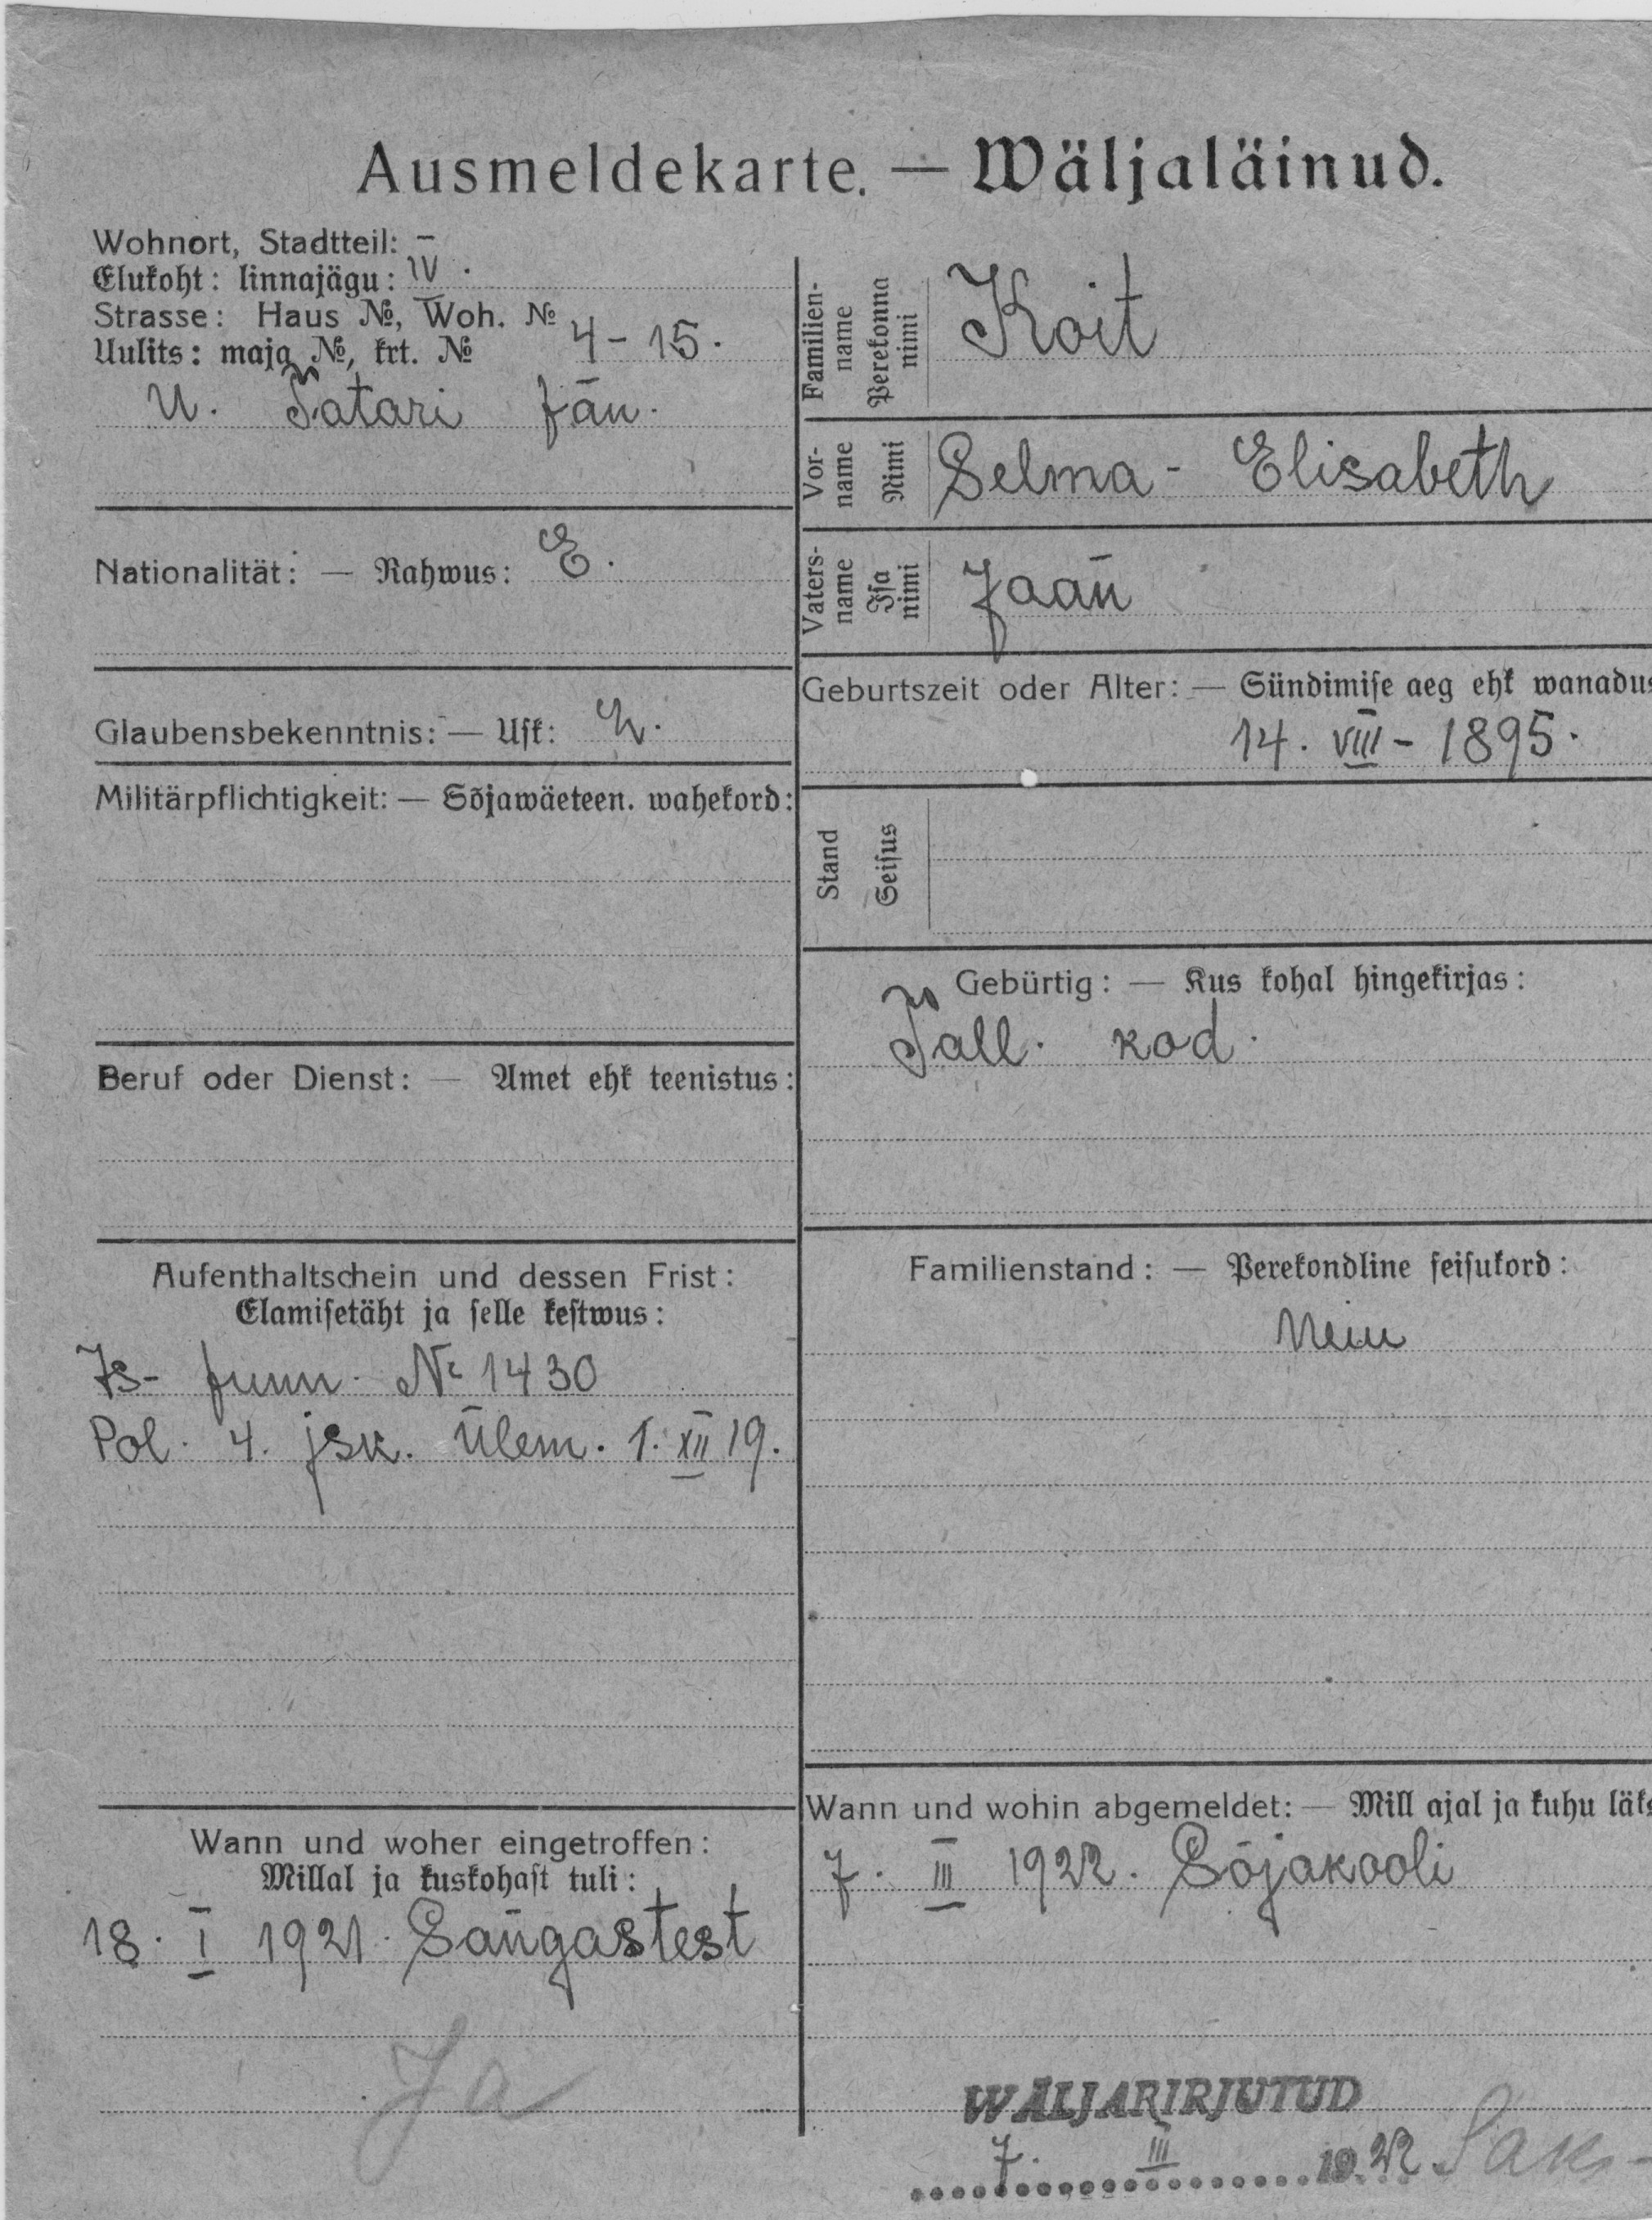 Ausmeldekarte. — Wäljaläinud.
Wohnort, Stadtteil: –
Elukoht: linnajägu: IV.
Strasse: Haus №, Woh. №
Uulits: maja №, krt. № 4 - 15.
U. Tatari
Nationalität: — Rahwus: E.
Glaubensbekenntnis: — Usk: L.
Militärpflichtigkeit: — Sõjawäeteen. wahekord:
Beruf oder Dienst: — Amet ehk teenistus:
Aufenthaltschein und dessen Frist:
Elamisetäht ja selle kestwus:
Is- tunn. № 1430
Pol. 4. jsk. Ülem. 1. XII 19.
Wann und woher eingetroffen:
Millal ja kuskohast tuli:
18. I 1921. Sangastest
Ja
Familien-
name
Perekonna
nimi
Koit
Vor-
name
Nimi
Selma - Elisabeth
Vaters-
name
Isa
nimi
Jaan
Geburtszeit oder Alter: — Sündimise aeg ehk wanadus
14. VIII - 1895.
Stand
Seisus
Gebürtig: — Kus kohal hingekirjas:
Tall. kod.
Familienstand: — Perekondline seisukord:
Wann und wohin abgemeldet: — Mill ajal ja kuhu läks
7. III 1922. Sõjakooli
WÄLJAKIRJUTUD
7. III 1922. Saks-